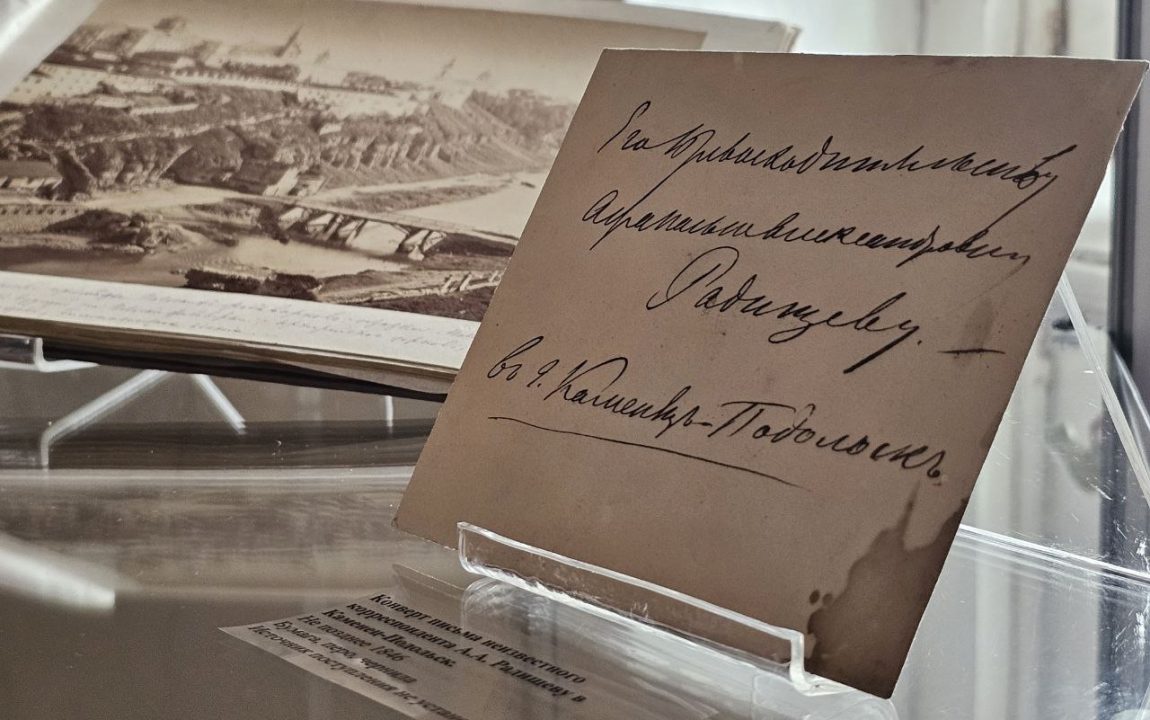 Его Превосходительству
Афанасью Александровичу
Радищеву.
въ г. Каменецъ-Подольскъ.
Конверт письма неизвестного
корреспондента А.А. Радищеву в
Каменец-Подольск.
Не позднее 1846
Бумага, перо, чернила
Источник поступления не